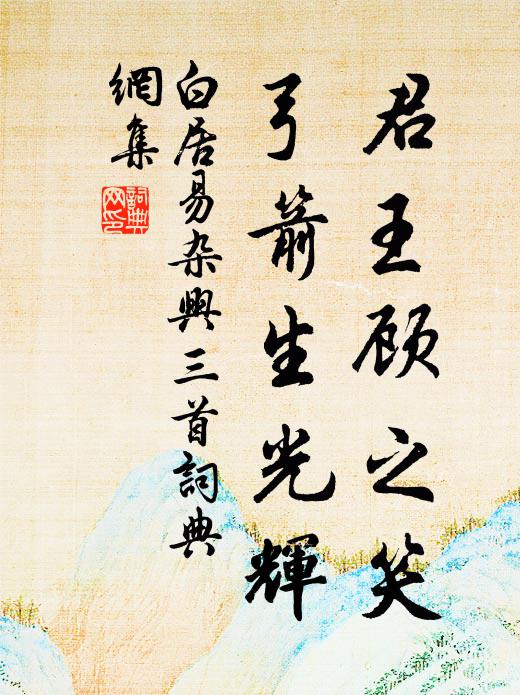 君王顾之笑
弓箭生光輝
白居易杂興三首詞典
網集
詞典
网印